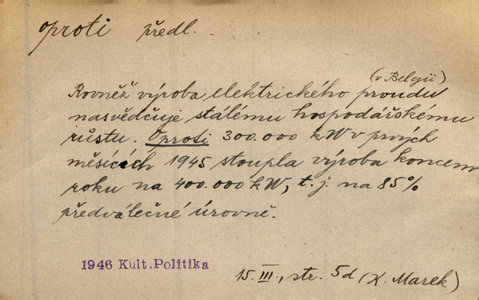 oproti předl.
(v Belgii)
Rovněž výroba elektrického proudu
nasvědčuje stálému hospodářskému
růstu. Oproti 300.000 kW v prvých
měsících 1945 stoupla výroba koncem
roku na 400.000 kW, t.j. na 85%
předválečné úrovně.
1946 Kult.Politika
15. III., str. 5d (K. Marek)